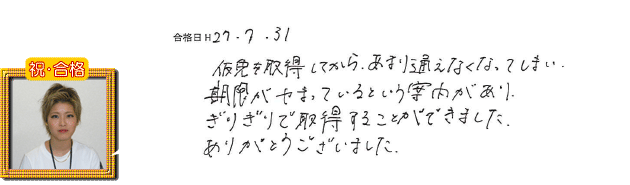 合格日 H27.7.31
祝・合格
仮免を取得してから、あまり通えなくなってしまい、
期限がせまっているという案内があり、
ぎりぎりで取得することができました。
ありがとうございました。